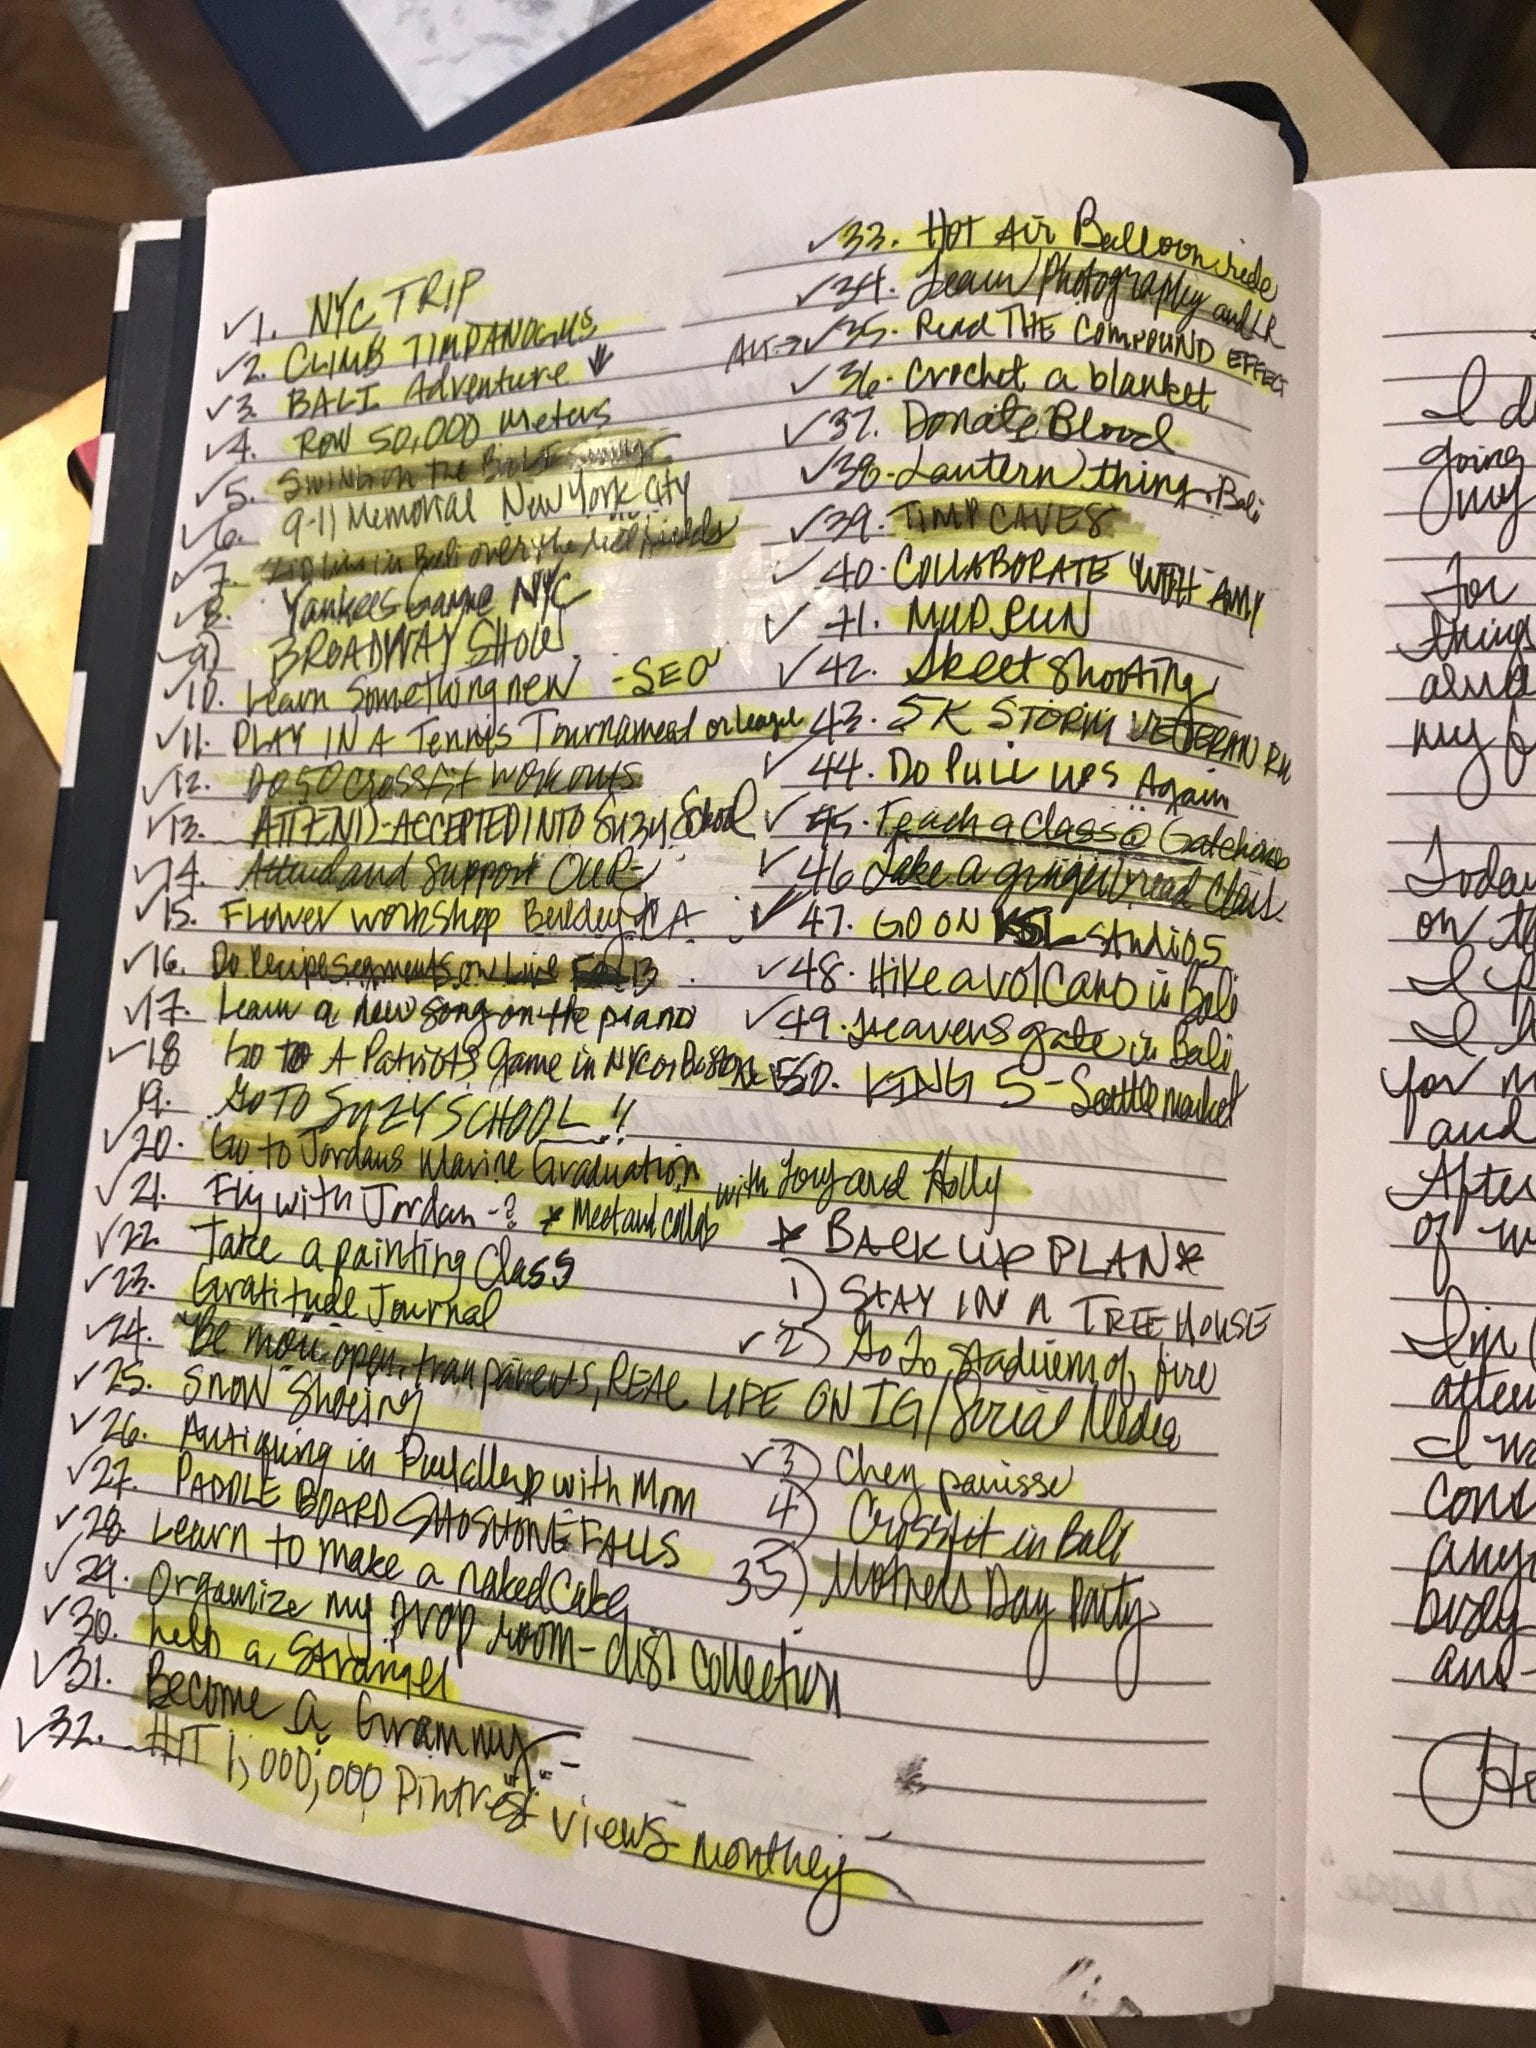 ✓1. NYC TRIP
✓2. CLIMB TIMPANOGUS
✓3. BALI Adventure ↓
✓4. ROW 50,000 meters
✓5. Swing on the BALI Swing
✓6. 9-11 Memorial New York City
✓7. Zip line in Bali over the rice fields
✓8. Yankees Game NYC
✓9) BROADWAY SHOW
✓10. Learn Something new - SEO
✓11. PLAY IN A Tennis Tournament or league
✓12. Do 50 Crossfit workouts
✓13. ATTEND-ACCEPTED INTO Suzy School
✓14. Attend and Support OUR
✓15. Flower workshop Berkley CA
✓16. Do Recipe segments on Live 13
✓17. Learn a new song on the piano
✓18 Go to A Patriots Game in NYC or Boston
19. GO TO SUZY SCHOOL!!
✓20. Go to Jordans Marine Graduation
✓21. Fly with Jordan -? * Meet and collab with Tory and Holly
✓22. Take a painting Class
✓23. Gratitude Journal
✓24. Be more open, transparents, REAL LIFE ON IG/Social Media
✓25. Snow Shoeing
✓26. Antiquing in Puyallup with Mom
✓27. PADDLE BOARD SHOSHONE FALLS
✓28. Learn to make a naked Cake
✓29. Organize my prop room - dish collection
✓30. help a stranger
✓31. Become a Grammy
✓32. HIT 1,000,000 Pintrest views monthly
✓33. Hot Air Balloon ride
✓34. Learn Photography and LR
✓35. Read THE COMPOUND EFFECT
✓36. Crochet a blanket
✓37. Donate Blood
✓38. Lantern thing. Bali
✓39. TIMP CAVES
✓40. COLLABORATE WITH AMY
✓41. MUD RUN
✓42. Skeet shooting
✓43. 5K STORM VETERAN RUN
✓44. Do PULL UPS Again
✓45. Teach a class @ Gatehouse
✓46 Take a gingerbread class.
✓47. GO ON KSL Studio 5
✓48. Hike a volcano in Bali
✓49. Heavens gate in Bali
✓50. KING 5 - Seattle market
* BACK UP PLAN *
1) STAY IN A TREE HOUSE
✓2) Go To Stadiem of fire
✓3) Chez panisse
4) Crossfit in Bali
35) Mothers Day Party
I d
going
my
For
things
my f
Today
on th
I p
I h
for m
and
After
of w
I'm
atten
I wa
cons
any
body
and